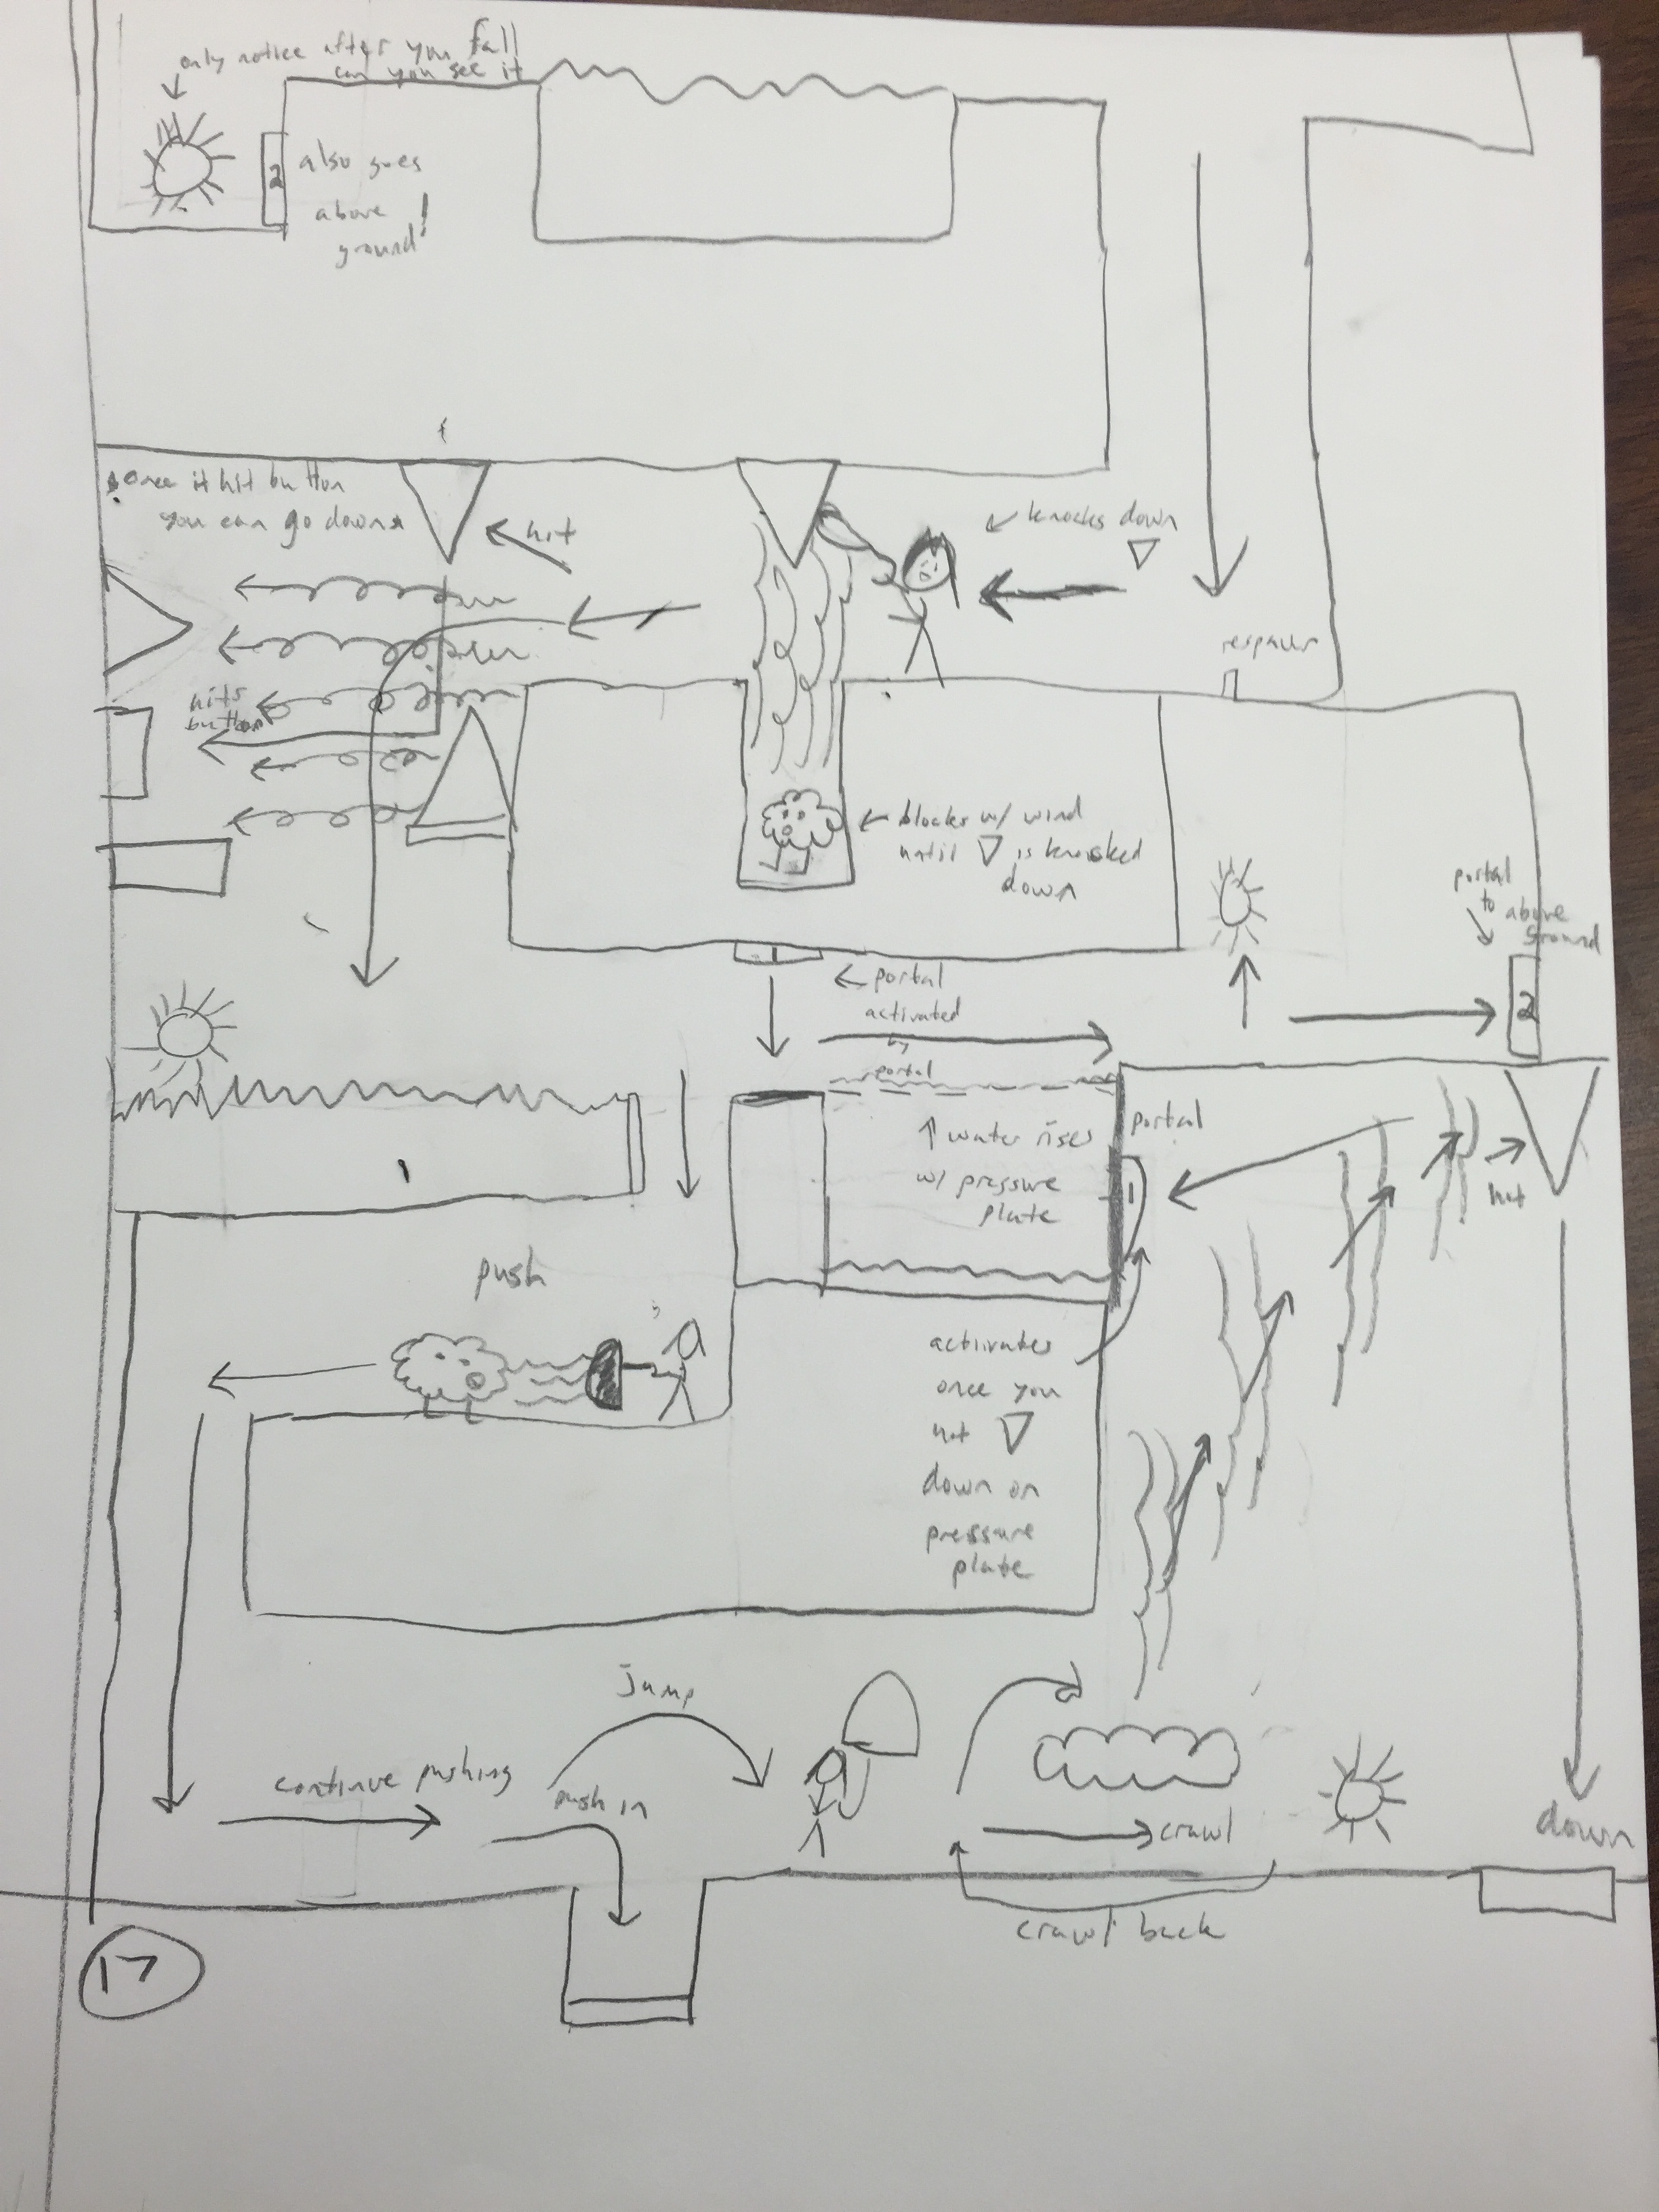 only notice after you fall
can you see it
2
also goes
above
ground!
once it hit button
you can go down
hit
knocks down
respawn
hits
button
blocks w/ wind
until ▽ is knocked
down
portal
to above
ground
1
portal
activated
by
portal
2
portal
↑ water rises
w/ pressure
plate
1
hit
push
activates
once you
hit ▽
down on
pressure
plate
jump
continue pushing
push in
crawl
down
crawl back
17